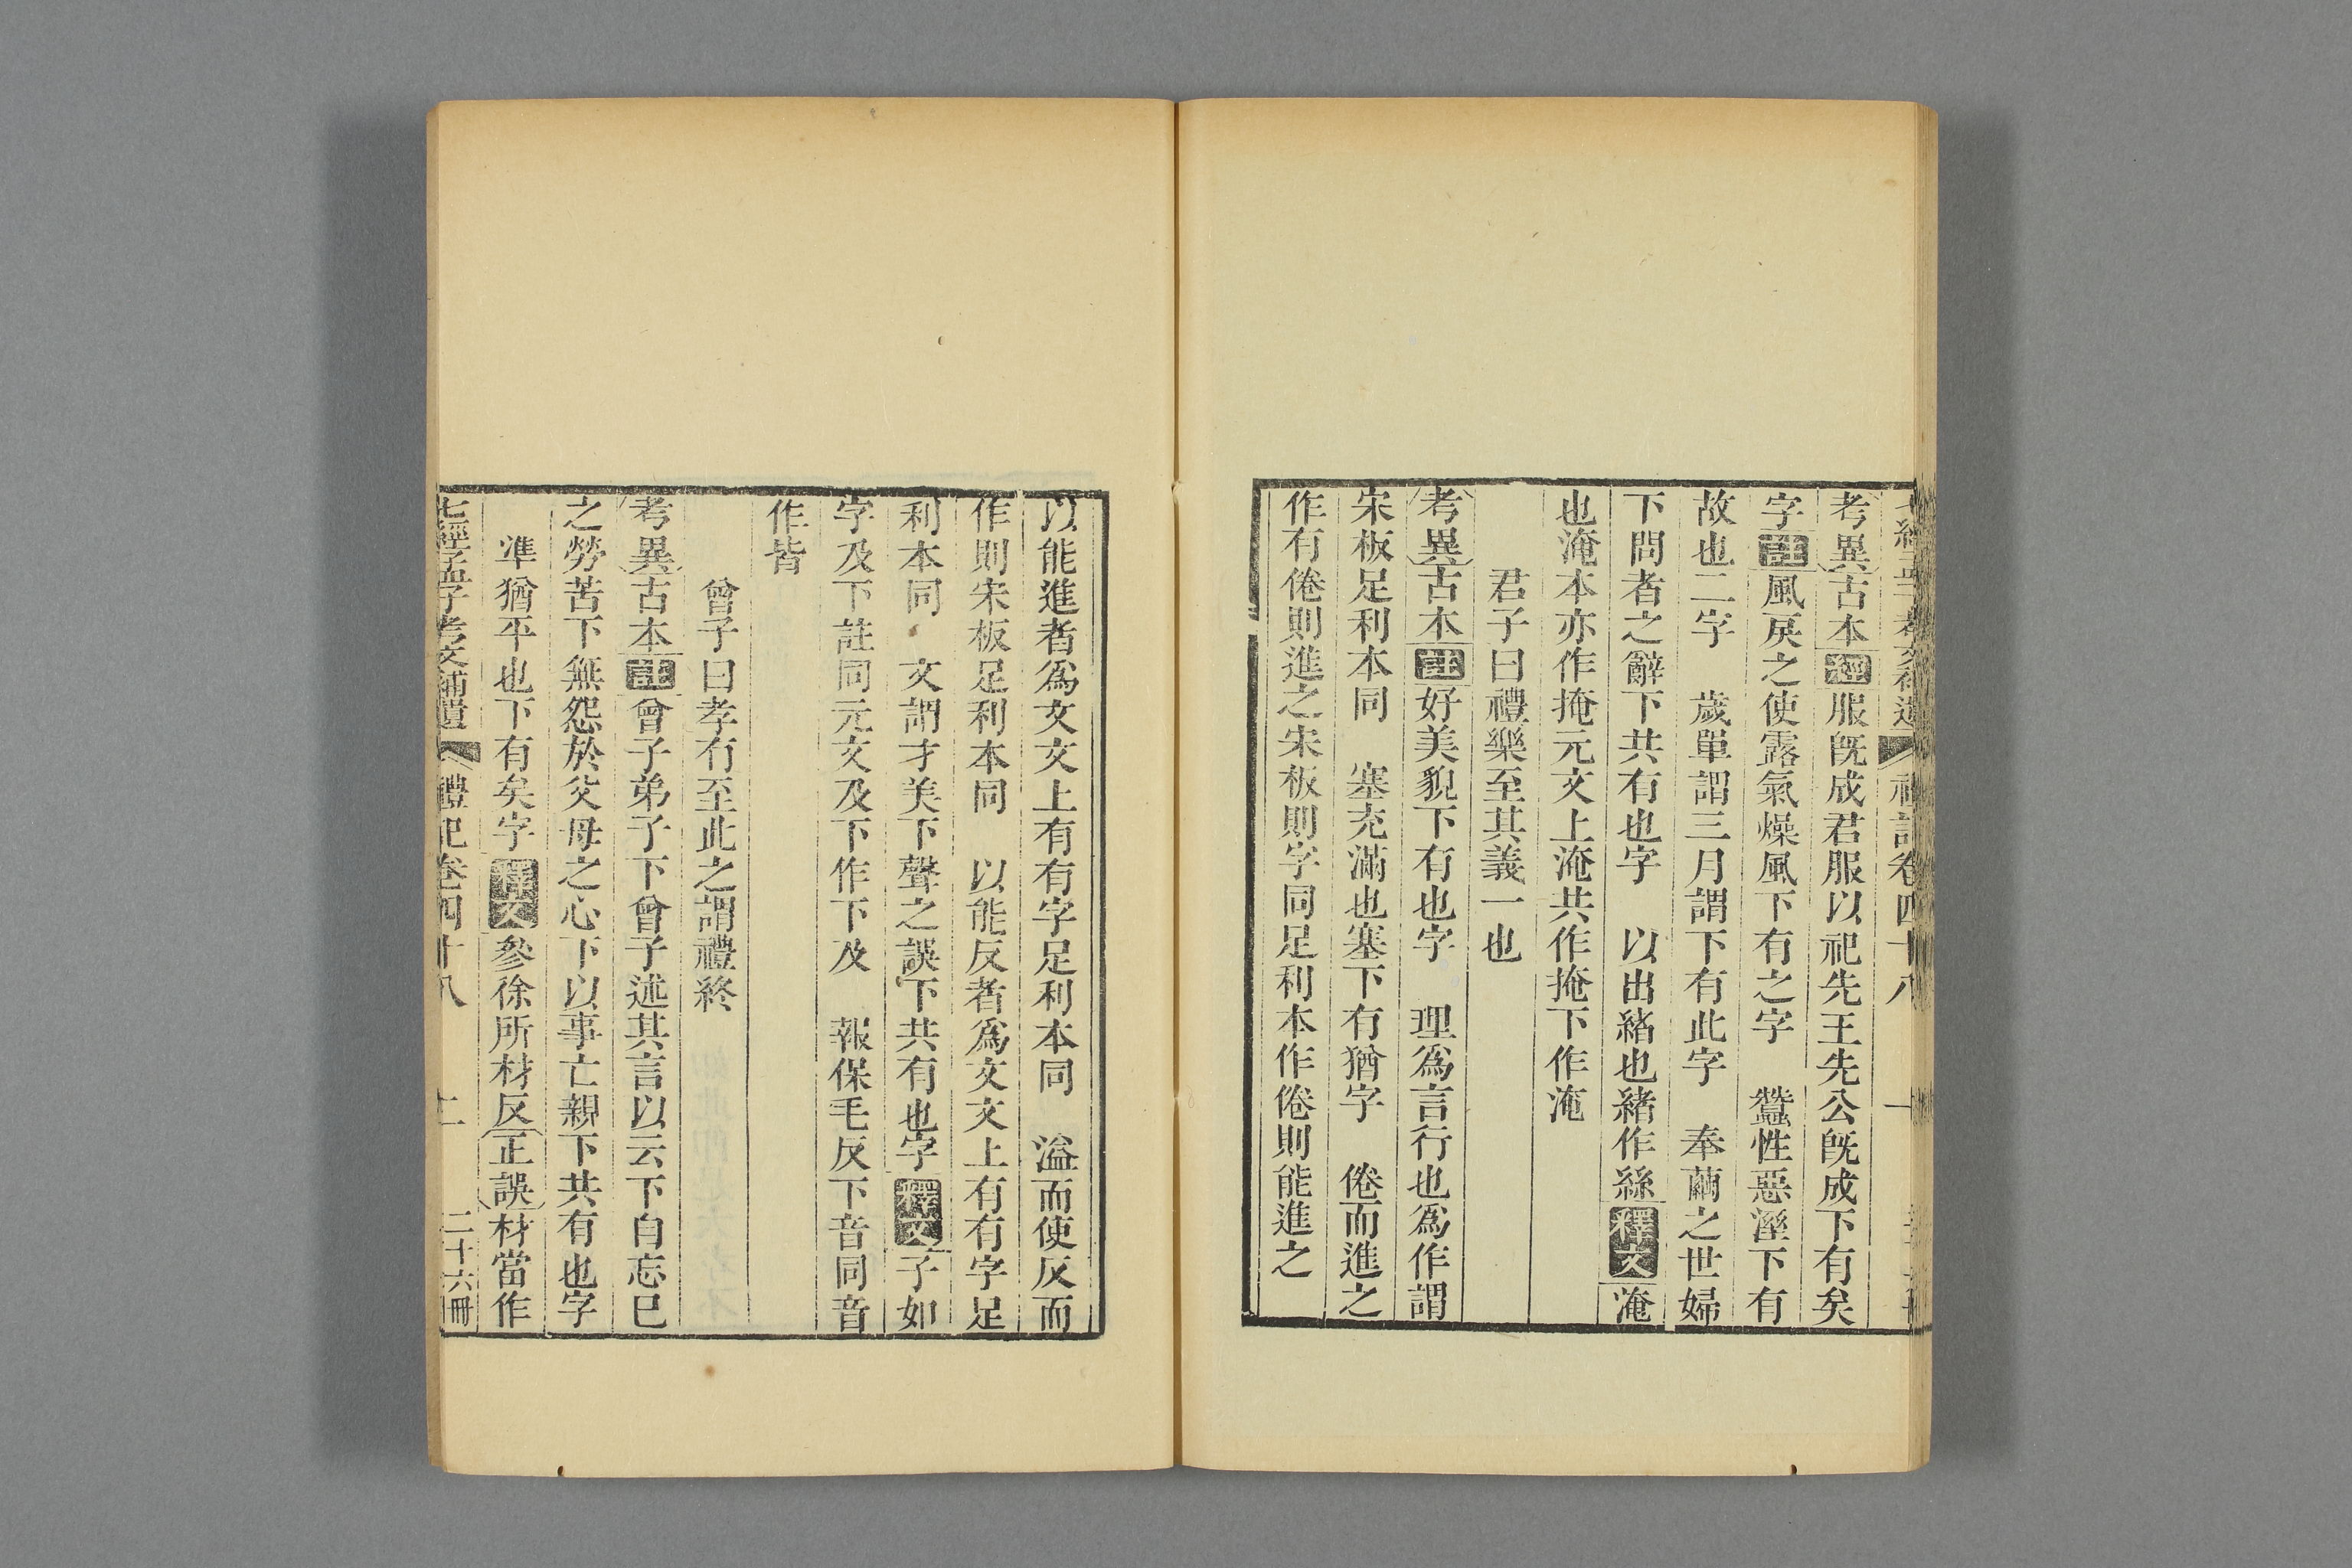 考異古本經服既成君服以祀先王先公既成下有矣
字註風戾之使露氣燥風下有之字　蠶性惡溼下有
故也二字　歲單謂三月謂下有此字　奉繭之世婦
下問者之辭下共有也字　以出緒也緒作絲釋文淹
也淹本亦作掩元文上淹共作掩下作淹
君子曰禮樂至其義一也
考異古本註好美貌下有也字　理爲言行也爲作謂
宋板足利本同　塞充滿也塞下有猶字　倦而進之
作有倦則進之宋板則字同足利本作倦則能進之
以能進者爲文文上有有字足利本同　溢而使反而
作則宋板足利本同　以能反者爲文文上有有字足
利本同　文謂才美下聲之誤下共有也字釋文子如
字及下註同元文及下作下及　報保毛反下音同音
作皆
曾子曰孝有至此之謂禮終
考異古本註曾子弟子下曾子述其言以云下自忘已
之勞苦下無怨於父母之心下以事亡親下共有也字
準猶平也下有矣字釋文參徐所材反正誤材當作
七經孟子考文補遺　禮記卷四十八　二　二十六冊